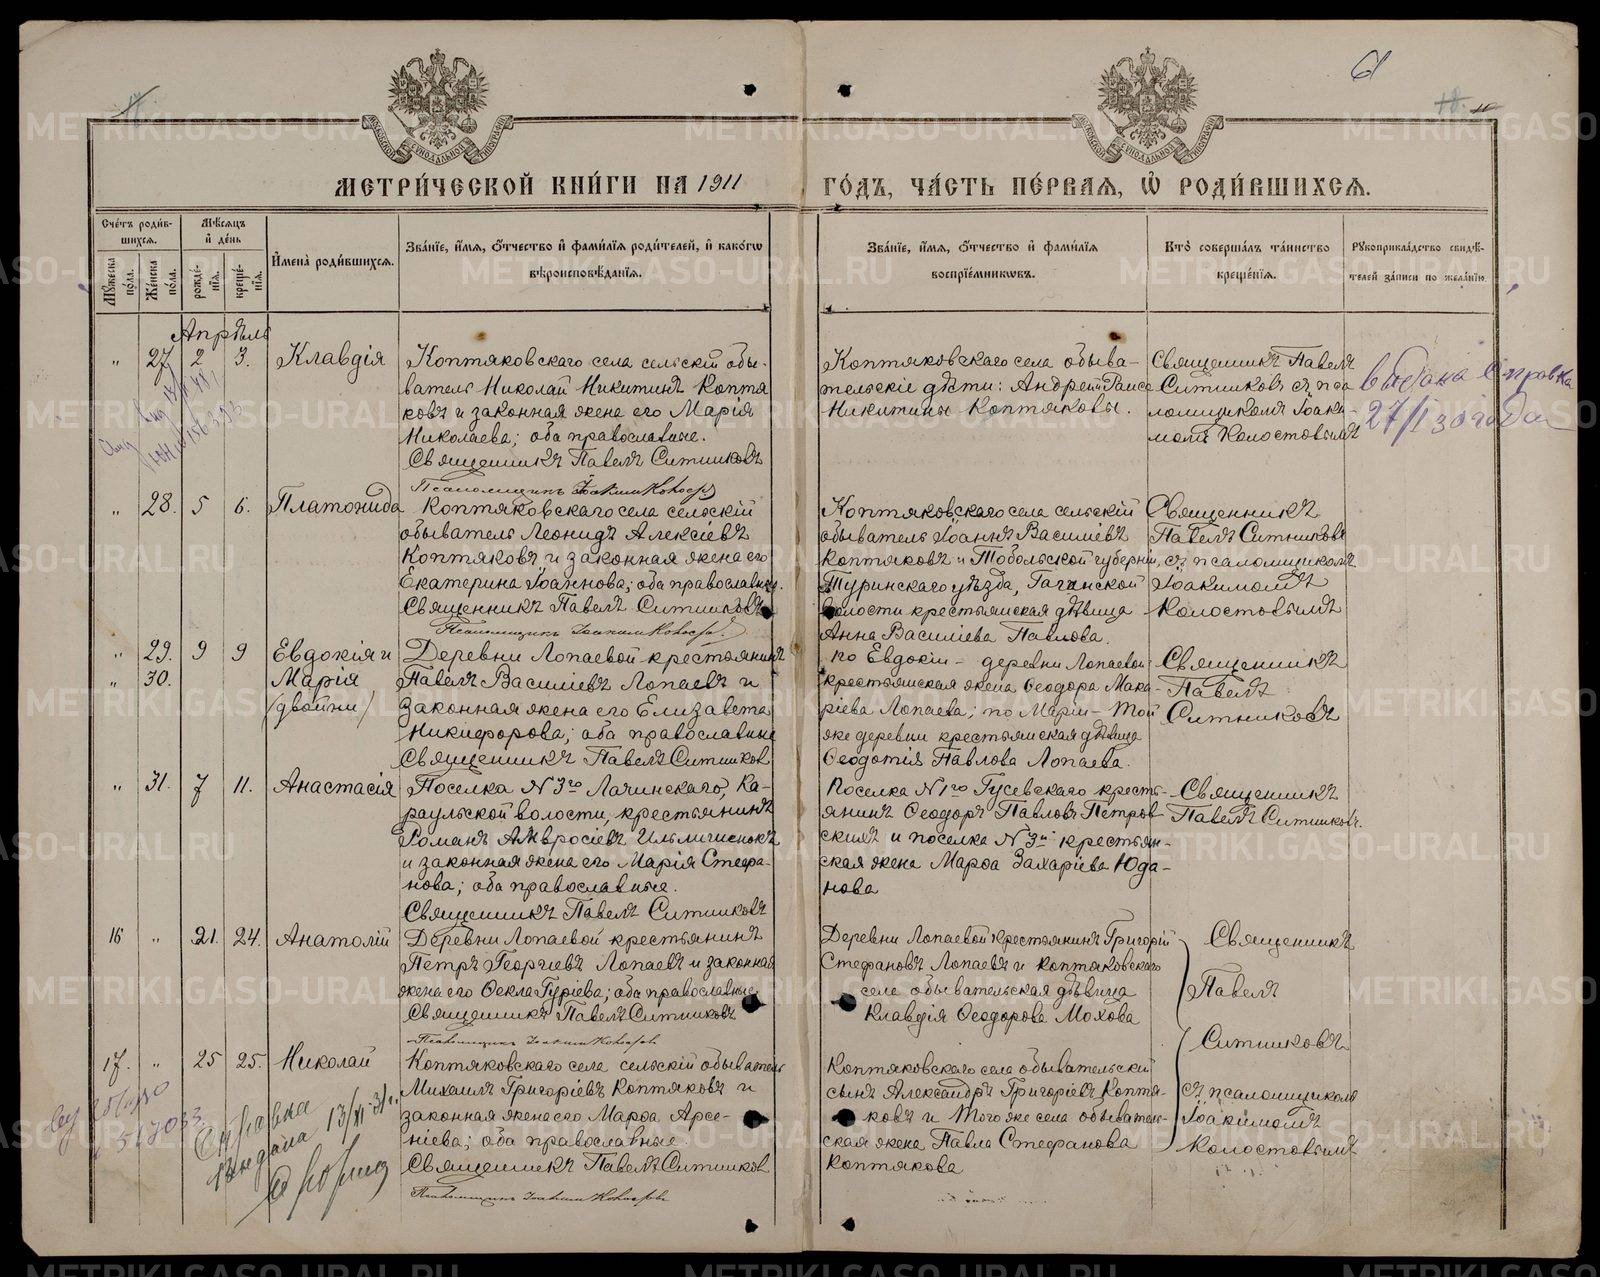 МОСКОВСКОЙ СѴНОДАЛЬНОЙ ТИПОГРАФІИ
МОСКОВСКОЙ СѴНОДАЛЬНОЙ ТИПОГРАФІИ
МЕТРИ́ЧЕСКОЙ КНИ́ГИ НА 1911 ГО́ДЪ, ЧА́СТЬ ПЕ́РВАЯ, Ѡ҆ РОДИ́ВШИХСЯ.
Сче́тъ роди́в-
шихся.
Мꙋ́жеска по́ла.
Же́нска по́ла.
Мѣ́сяцъ
и҆ де́нь
рожде́-
нїя.
креще́-
нїя.
И҆мена̀ роди́вшихся.
Зва́нїе, и҆́мя, ѻ҆́тчество и҆ фами́лїя роди́телей, и҆ како́гѡ
вѣроисповѣ́данїя.
Зва́нїе, и҆́мя, ѻ҆́тчество и҆ фами́лїя
воспрїе́мникѡвъ.
Кто̀ соверша́лъ та́инство
креще́нїя.
Рꙋкоприкла́дство свидѣ́-
телей за́писи по жела́нїю.
Апрѣль
" 27. 2 3. Клавдія
Коптяковскаго села сельскій обы-
ватель Николай Никитинъ Коптя
ковъ и законная жена его Марія
Николаева; оба православные.
Священникъ Павелъ Ситниковъ
Коптяковскаго села обыва-
тельскіе дѣти: Андрей и Таисе
Никитины Коптяковы.
Священникъ Павелъ
Ситниковъ съ пса
ломщикомъ Іоаки-
момъ Колостовымъ
Выдана Справка
27/I 30 года
" 28. 5 6. Платонида
Коптяковскаго села сельскій
обыватель Леонидъ Алексіевъ
Коптяковъ и законная жена его
Екатерина Іоаннова; оба православные.
Священникъ Павелъ Ситниковъ
Коптяковскаго села сельскій
обыватель Іоаннъ Василіевъ
Коптяковъ и Тобольской губерніи,
Туринскаго уѣзда,
волости крестьянская дѣвица
Анна Василіева Павлова.
Священникъ
Павелъ Ситниковъ
съ псаломщикомъ
Іоакимомъ
Колостовымъ
" 29. 9 9 Евдокія и
" 30. Марія
(двойни)
Деревни Лопаевой крестьянинъ
Павелъ Василіевъ Лопаевъ и
законная жена его Елизавета
Никифорова; оба православные
Священникъ Павелъ Ситников
по Евдокіи - деревни Лопаевой
крестьянская жена Ѳеодора Мака-
ріева Лопаева; по Маріи - той
же деревни крестьянская дѣвица
Ѳеодотія Павлова Лопаева.
Священникъ
Павелъ
Ситниковъ
" 31. 7 11. Анастасія
Поселка N 3го Лачинскаго, Ка-
раульской волости, крестьянинъ
Романъ Амвросіевъ
и законная жена его Марія Стефа-
нова; оба православные.
Священникъ Павелъ Ситниковъ
Поселка N 1го Гусевскаго кресть-
янинъ Ѳеодоръ Павловъ Петров-
скихъ и поселка N 3й крестьян-
ская жена Марѳа Захаріева Юда-
нова
Священникъ
Павелъ Ситниковъ.
16 " 21. 24. Анатолій
Деревни Лопаевой крестьянинъ
Петръ Георгіевъ Лопаевъ и законная
жена его Ѳекла Гуріева; оба православные
Священникъ Павелъ Ситниковъ
Деревни Лопаевой крестьянинъ Григорій
Стефановъ Лопаевъ и Коптяковскаго
села обывательская дѣвица
Клавдія Ѳеодорова Мохова
Священникъ
Павелъ
Ситниковъ
17. " 25 25. Николай
Коптяковскаго села сельскій обыватель
Михаилъ Григоріевъ Коптяковъ и
законная жена его Марѳа Арсе-
ніева; оба православные.
Священникъ Павелъ Ситников
Коптяковскаго села обывательскій
сынъ Александръ Григоріевъ Коптя-
ковъ и того же села обыватель-
ская жена Павла Стефанова
Коптякова
съ псаломщикомъ
Іоакимомъ
Колостовымъ
Справка
выдана 13/XI-31 г.
METRIKI.GASO-URAL.RU